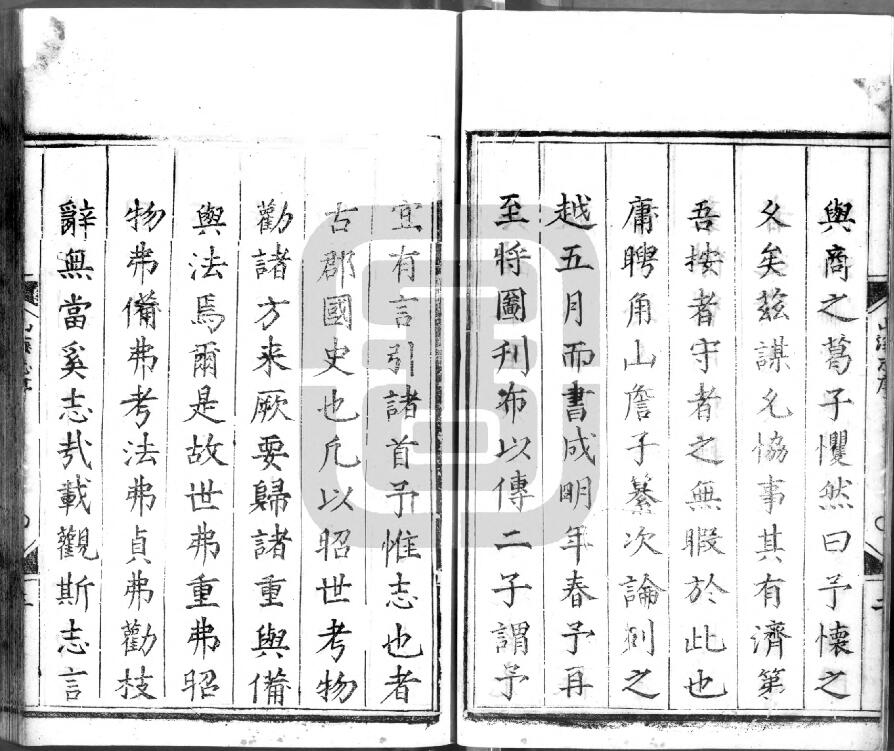 與商之葛子懼然曰予懷之
久矣兹謀允恊事其有濟第
吾按者守者之無暇於此也
庸聘角山詹子纂次論列之
越五月而書成明年春予再
至將圖刊布以傳二子謂予
宜有言引諸首予惟志也者
古郡國史也凡以昭世考物
勸諸方来厥要歸諸重與備
與法焉爾是故世弗重弗昭
物弗備弗考法弗貞弗勸枝
辭無當奚志㢤載觀斯志言